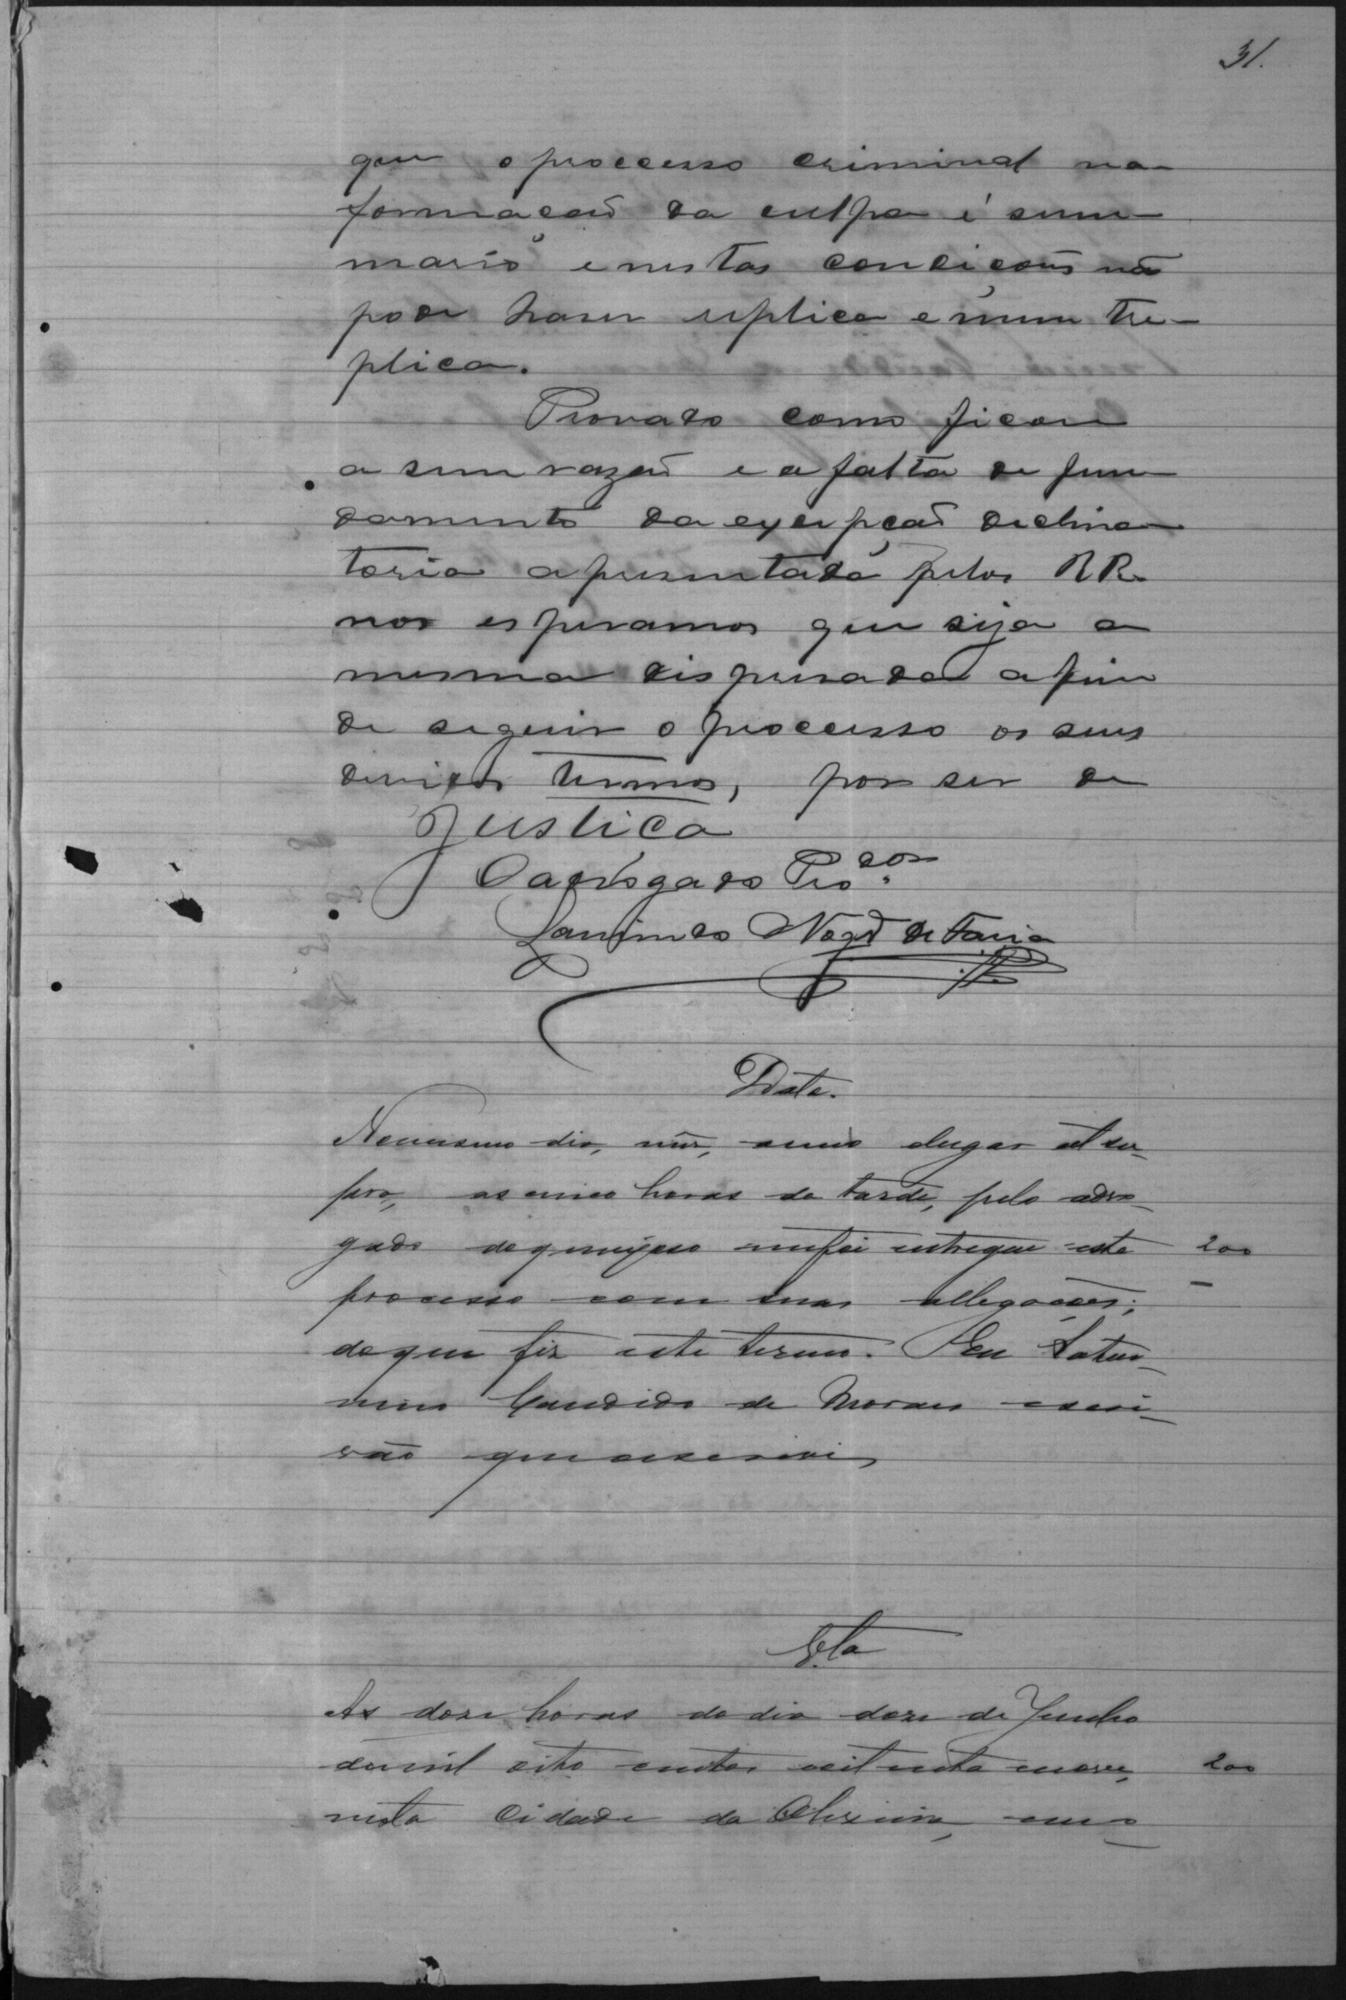 31.
que o processo criminal na
formação da culpa é sum-
mario e nestas condições não
pode haver replica e nem tre-
plica.
Provado como ficou
a sem razão e a falta de fun-
damento da exepção declina-
toria apresentada pelos RR.
nos esperamos que seja a
mesma despresada afim
de seguir o processo os seus
devidos termos, por ser de
Justiça
O advogado Pro.dor
Nog.ra de Faria
Data.
No mesmo dia, mez, anno elugar retsu-
pra, as cinco horas da tarde, pelo advo-
gado do queixoso me foi entregue este 200
processo com suas allegações;
do que fiz este termo. Eu Satur-
nino Candido de Moraes escri-
vão que o escrevi
As dose horas do dia doze de Junho
de mil oito centos oitenta e nove, 200
nesta Cidade da Oliveira, em